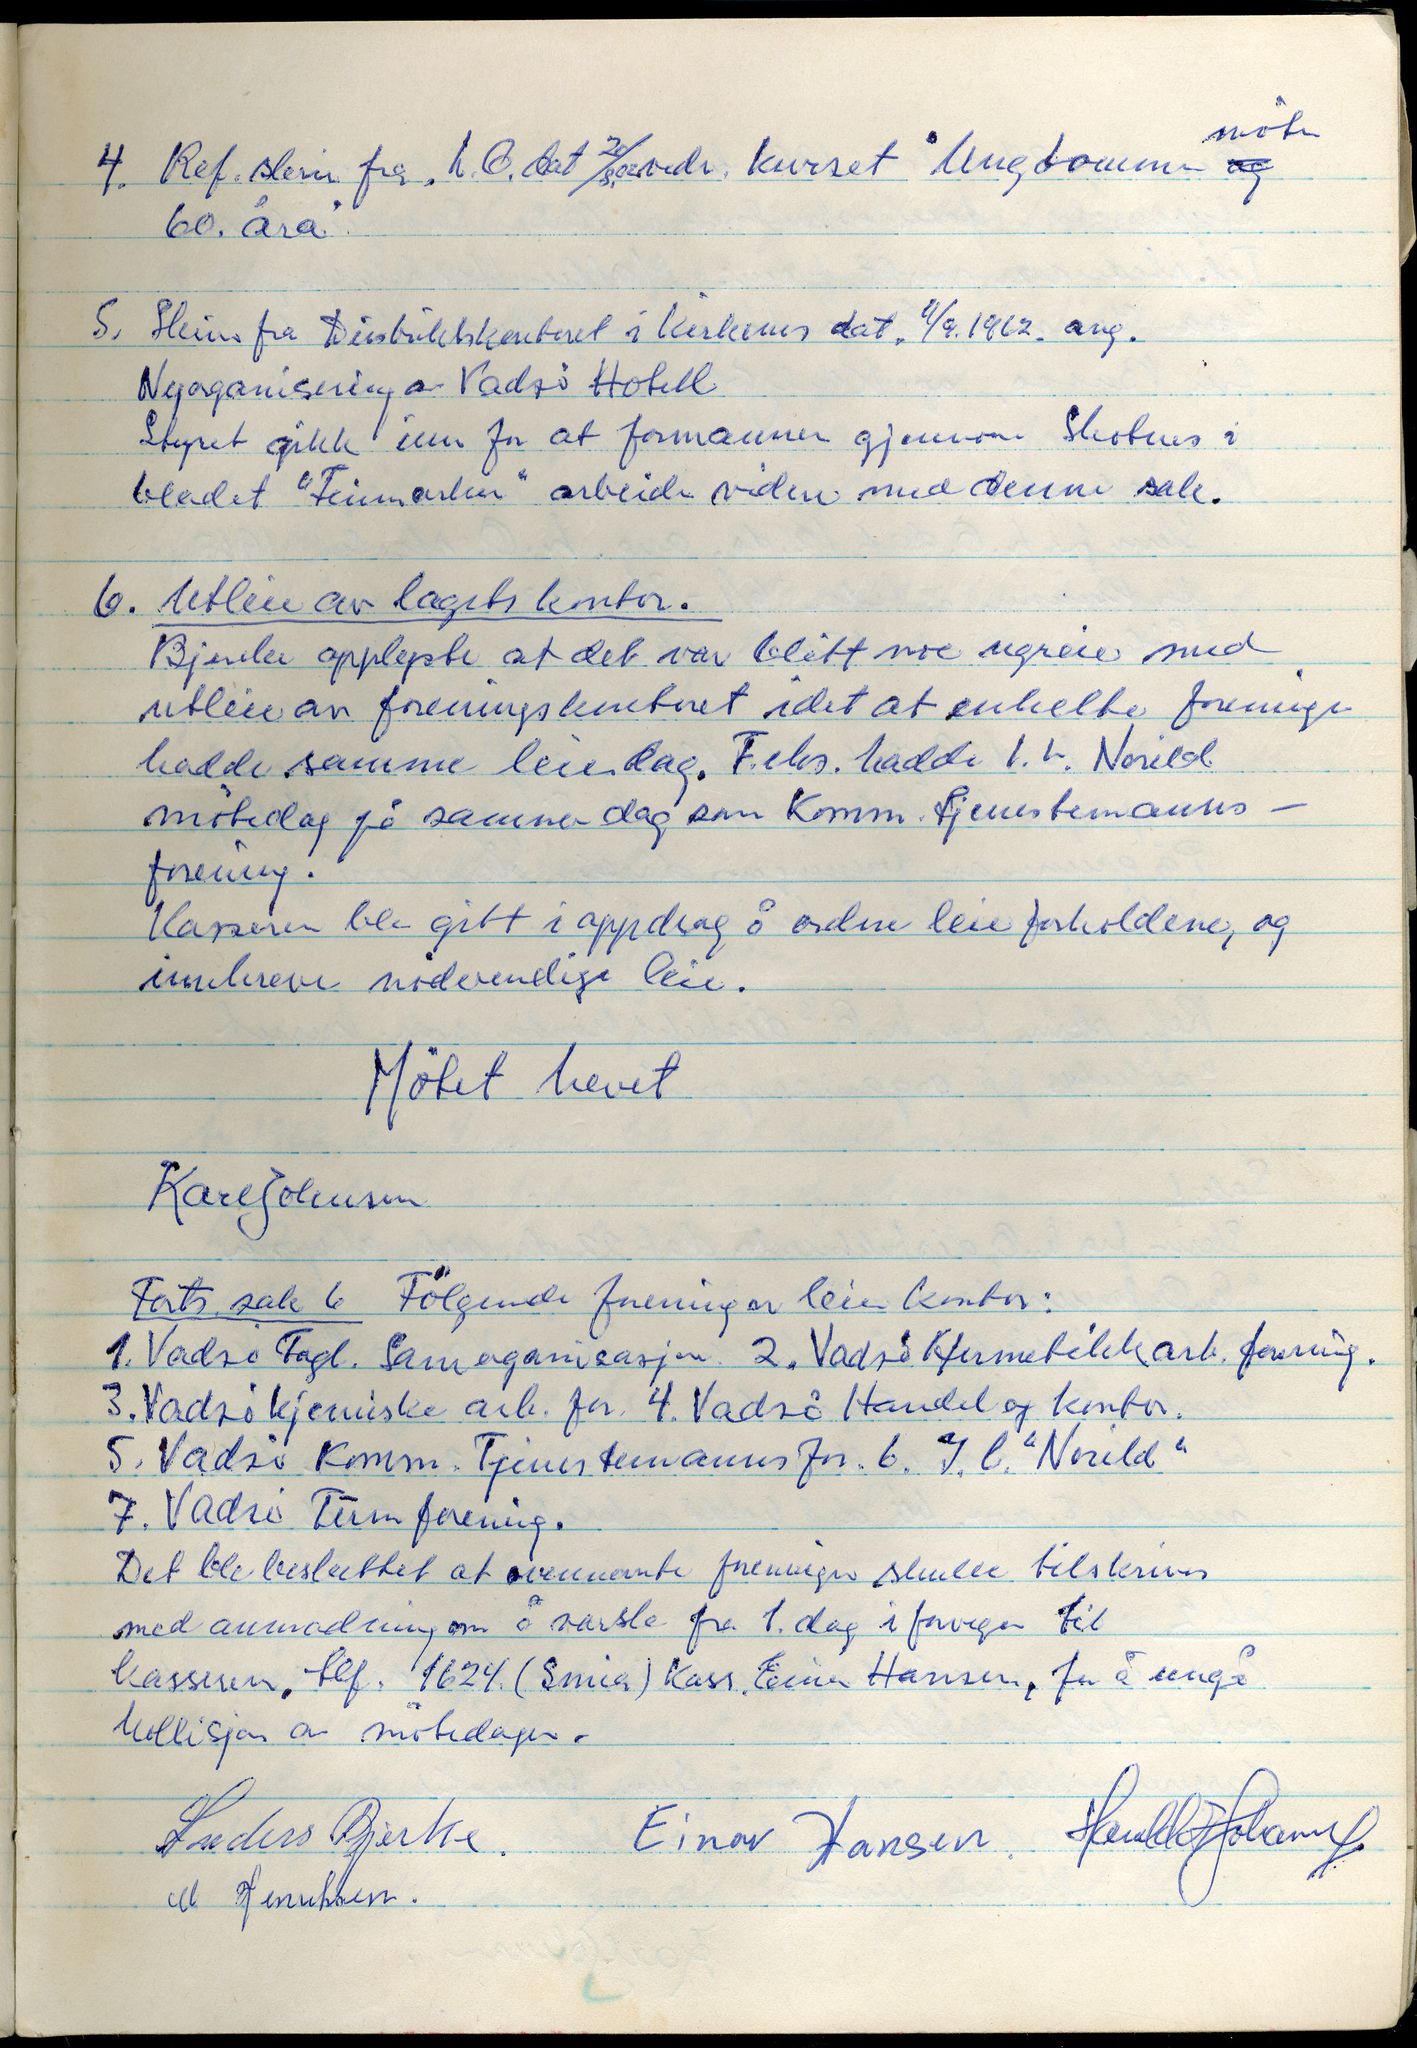 möte
4. Ref. skriv fra L.O. dat 20/8.62 vedr. kurset "Ungdommen og
60. åra".
5. Skriv fra Distriktskontoret i Kirkenes dat. 4/9.1962. ang.
Nyorganisering av Vadsö Hotell
Styret gikk inn for at formannen gjennom Skotnes i
bladet "Finnmarken" arbeide videre med denne sak.
6. Utleie av lagets kontor.
Bjerke opplyste at det var blitt noe ugreie med
utleie av foreningskontoret idet at enkelte foreninger
hadde samme leiedag. F.eks. hadde I.L. Norild
mötedag på samme dag som Komm. tjenestemanns-
forening.
Kasseren ble gitt i oppdrag å ordne leieforholdene, og
innkreve nödvendige leie.
Mötet hevet
Karl Johnsen
Forts. sak 6 Fölgende foreninger leier kontor:
1. Vadsö Fagl. Samorganisasjon. 2. Vadsö Hermetikkarb. forening.
3. Vadsö kjemiske arb. for. 4. Vadsö Handel og kontor.
5. Vadsö Komm. Tjenestemannsfor. 6. I.L. "Norild"
7. Vadsö Turnforening.
Det ble besluttet at ovennevnte foreninger skulle tilskrives
med anmodning om å varsle fra 1. dag i forvegen til
kasseren, tlf. 1624. (Smia) Kass. Einar Hansen, for å unngå
kollisjon av mötedager.
Anders Bjerke. Einar Hansen. Harald Johansen
M Henriksen.